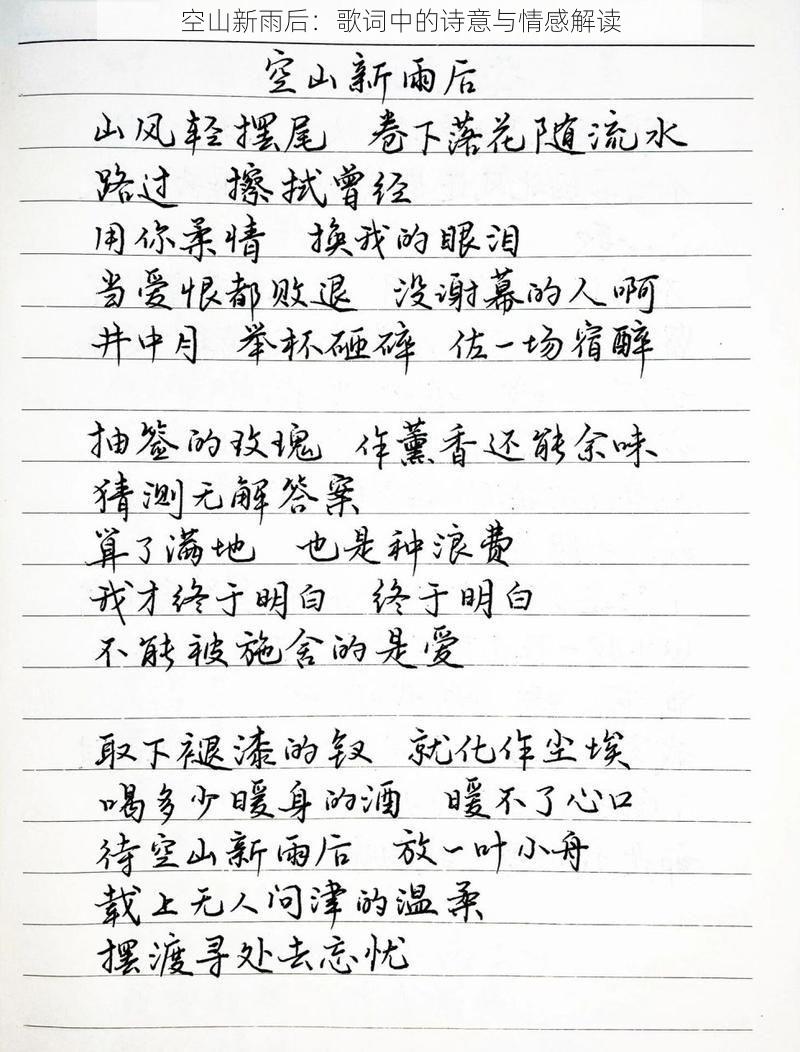 空山新雨后：歌词中的诗意与情感解读
空山新雨后
山风轻摆尾 卷下落花随流水
路过 擦拭曾经
用你柔情 换我的眼泪
当爱恨都败退 没谢幕的人啊
井中月 举杯砸碎 佐一场宿醉
抽签的玫瑰 作薰香还能余味
猜测无解答案
算了满地 也是种浪费
我才终于明白 终于明白
不能被施舍的是爱
取下褪漆的钗 就化作尘埃
喝多少暖身的酒 暖不了心口
待空山新雨后 放一叶小舟
载上无人问津的温柔
摆渡寻处去忘忧